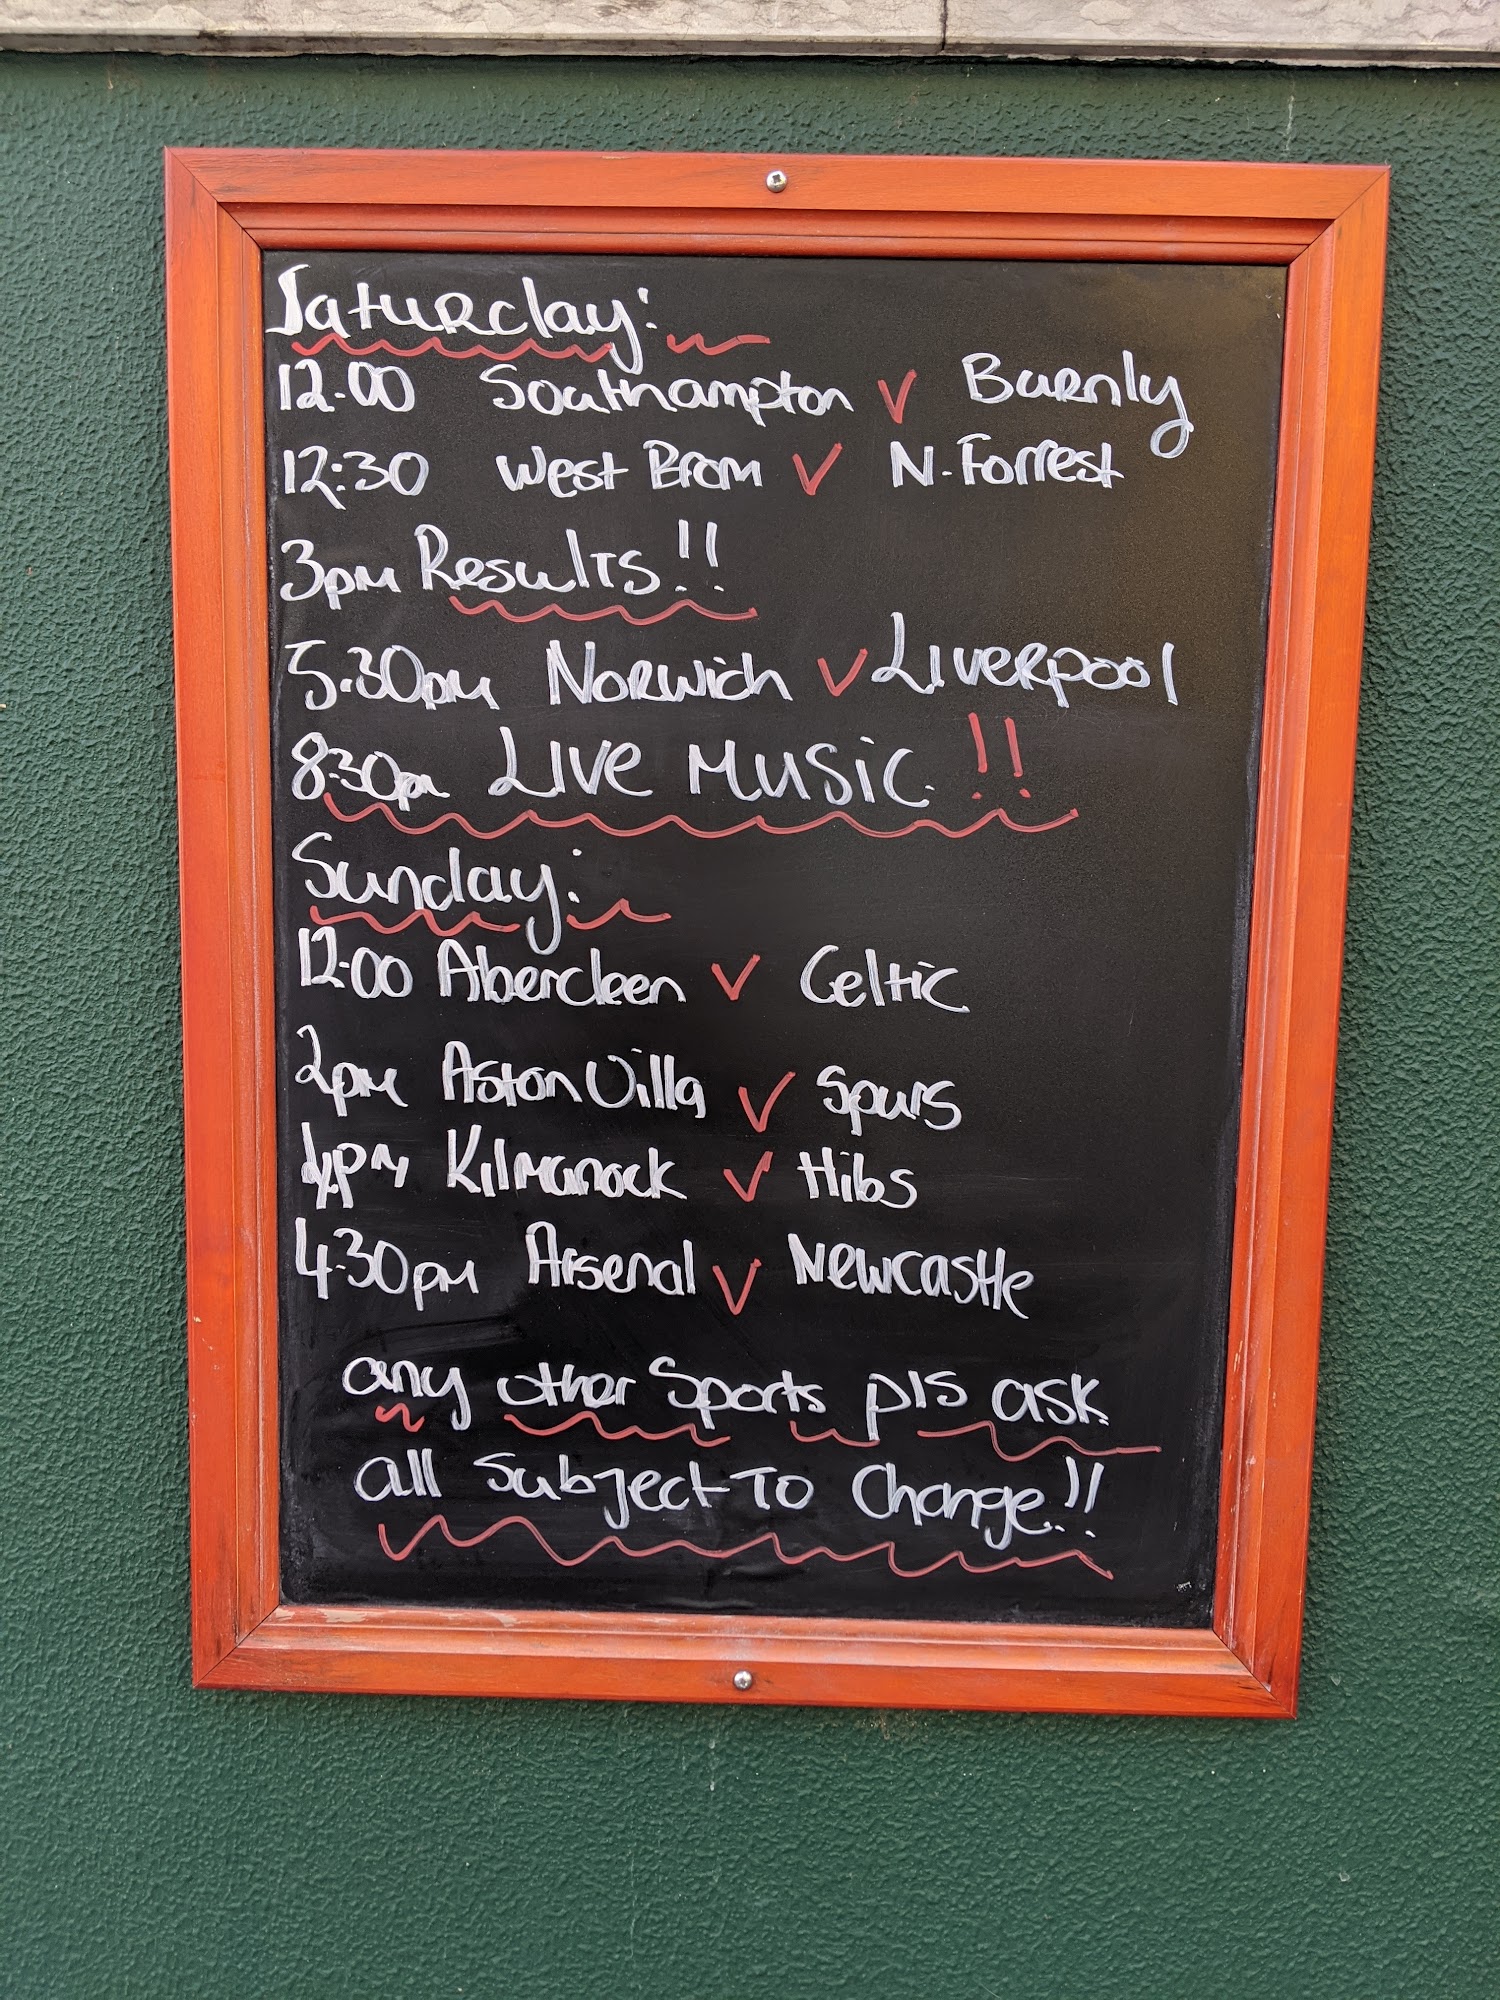 Saturday:
12.00 Southampton V Burnly
12:30 West Brom V N. Forrest
3pm Results!!
5.30pm Norwich V Liverpool
8.30pm Live Music!!
Sunday:
12.00 Aberdeen V Celtic
2pm Aston Villa V Spurs
4pm Kilmanock V Hibs
4.30pm Arsenal V Newcastle
any other Sports pls ask
all subject To Change!!